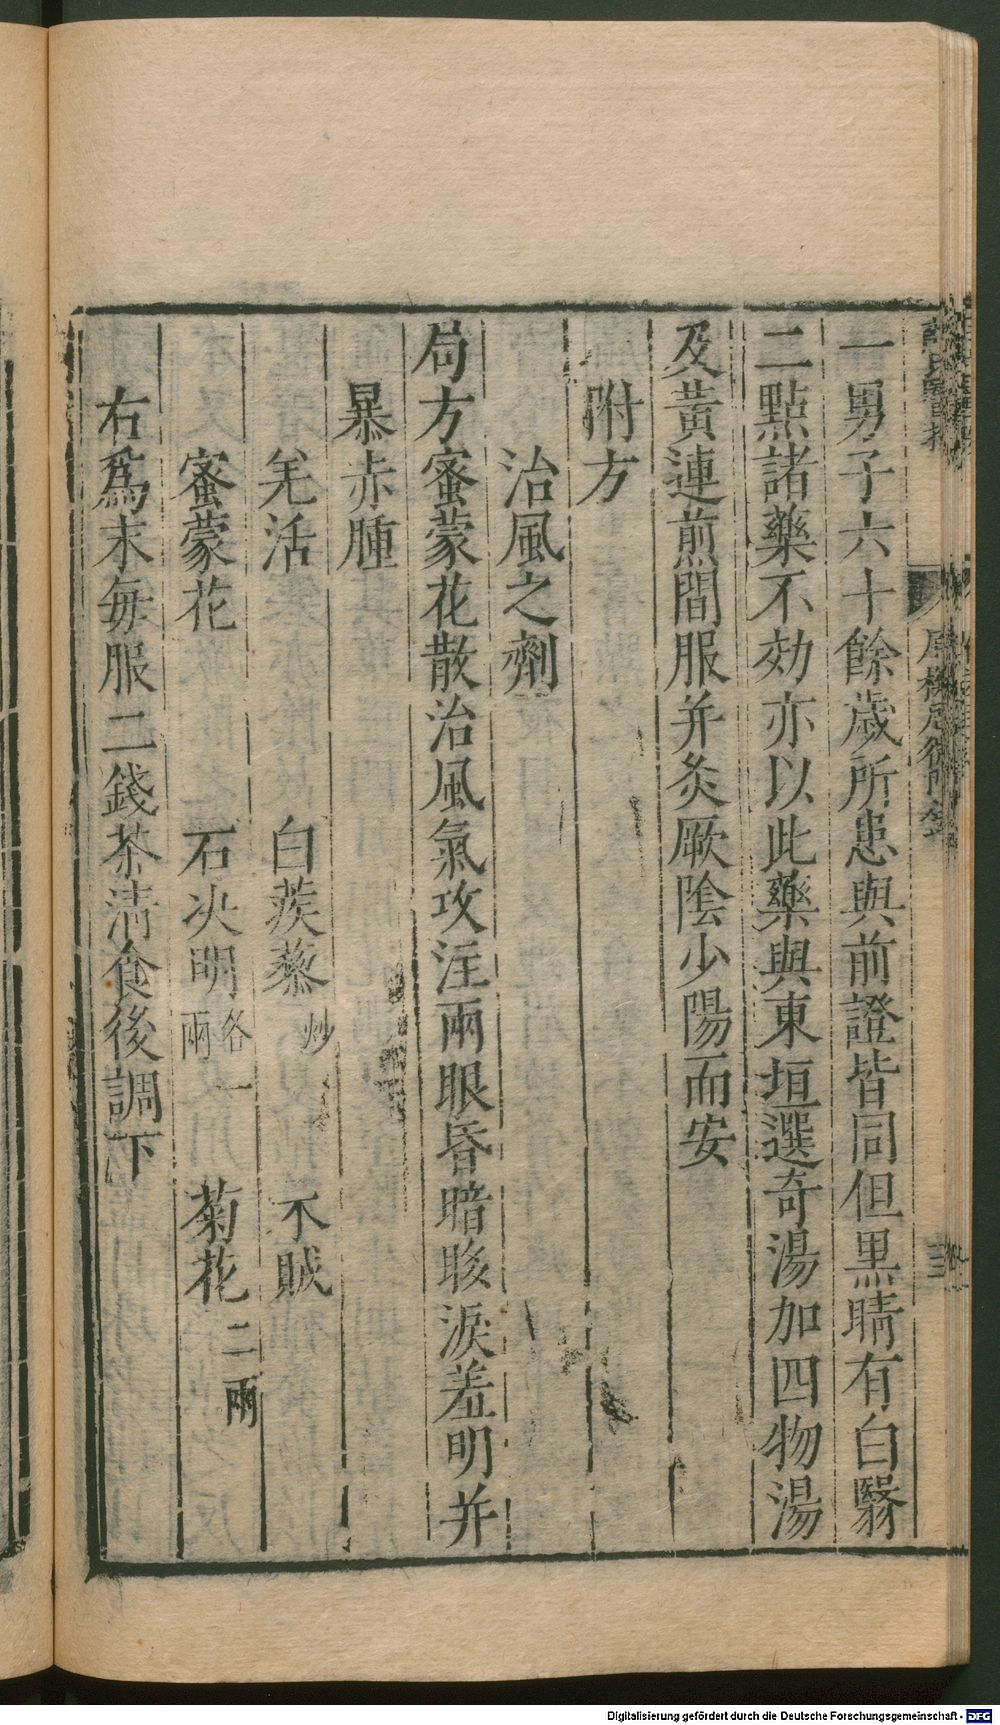 薛氏醫按
原機啓微附錄
三
一男子六十餘歲所患與前證皆同但黑睛有白翳
二點諸藥不効亦以此藥與東垣選奇湯加四物湯
及黃連煎間服并灸厥陰少陽而安
附方
治風之劑
局方蜜蒙花散治風氣攻注兩眼昏暗眵淚羞明并
暴赤腫
羌活 白蒺蔾炒 木賊
蜜蒙花 石决明各一兩 菊花二兩
右爲末每服二錢茶清食後調下
Digitalisierung gefördert durch die Deutsche Forschungsgemeinschaft - DFG